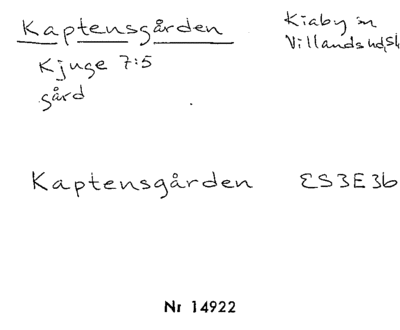 Kaptensgården
Kiaby sn
Villands hd, Sk
Kjuge 7:5
gård
Kaptensgården ES3E3b
Nr 14922